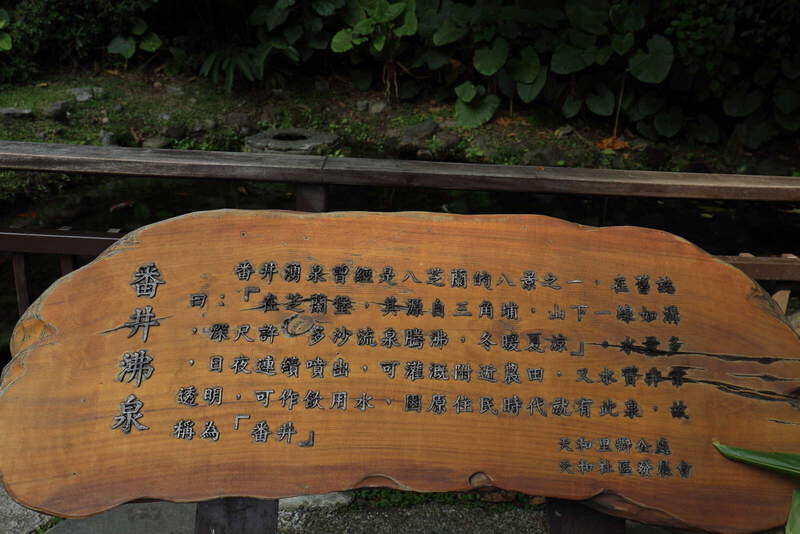 番井沸泉
番井湧泉曾經是八芝蘭的八景之一，在舊誌
曰：「在芝蘭堡，其源自三角埔，山下一緣如溝
，深尺許，多沙流泉騰沸，冬暖夏涼」。水量多
，日夜連續噴出，可灌溉附近農田，又水質非常
透明，可作飲用水，因原住民時代就有此泉，故
稱為「番井」
天和里辦公處
天和社區發展會